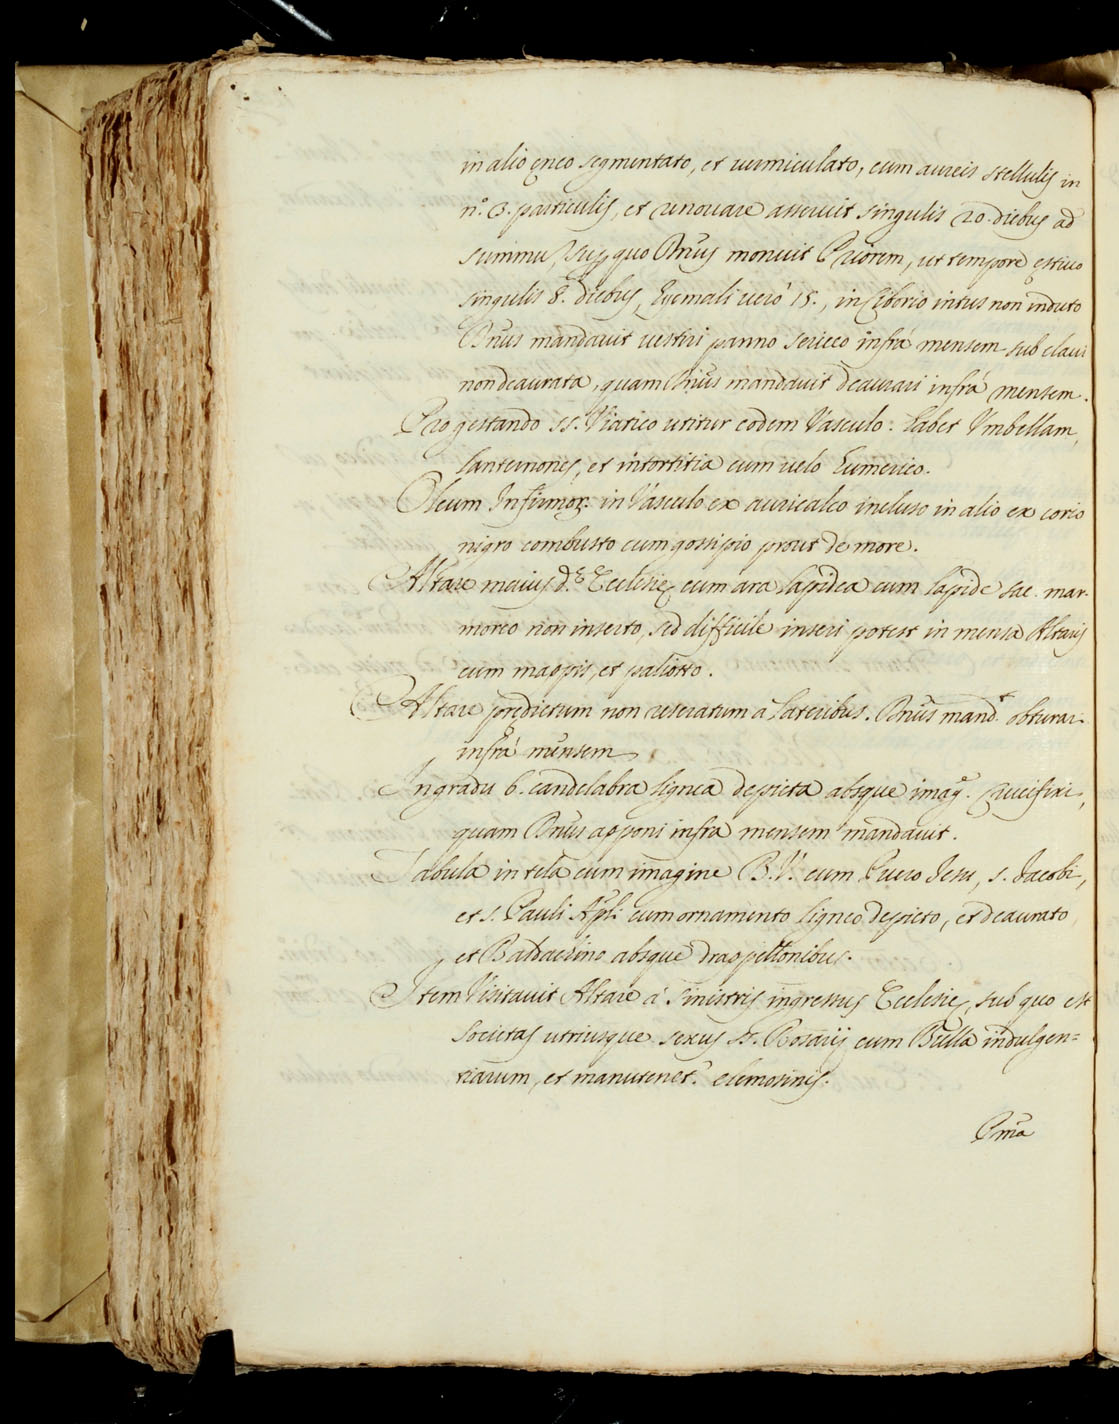 in alio ęneo segmentato, et uermiculato, cum aureis stellulis in
n.º 3. particulis, et renouare asseruit singulis 20. diebus ad
summũ, super quo Dnũs monuit Priorem, ut tempore ęstiuo
singulis 8. diebus, hyemali uerò 15., in Ciborio intus non induto
Dnũs mandauit uestiri panno sericeo infrà mensem sub claui
non deaurata, quam Dnũs mandauit deaurari infrà mensem.
Pro gestando SS. Viatico utitur eodem Vasculo: habet Vmbellam,
lanternones, et intortitia cum uelo humerico.
Oleum Infirmor: in Vasculo ex auricalco incluso in alio ex corio
nigro combusto cum gossipio prout de more.
Altare maius d.ę Ecclesię cum ara lapidea cum lapide sac. mar-
moreo non inserto, sed difficile inseri potest in mensa Altaris
cum mappis, et paliotto.
Altare prędictum non reseratum a lateribus. Dnũs mand.t obturari
infrà mensem
In gradu 6. candelabra lignea depicta absque imag.e Crucifixi,
quam Dnũs apponi infra mensem mandauit.
Tabula in tela cum imagine B. V. cum Puero Jesu, S. Jacobi,
et S. Pauli Apli: cum ornamento ligneo depicto, et deaurato
et Baldachino absque drappellonibus.
Item Visitauit Altare à sinistris ingressus Ecclesię, sub quo est
Societas utriusque sexus SS. Rosarij cum Bulla indulgen=
tiarum, et manutenet.r elemosinis.
Pma